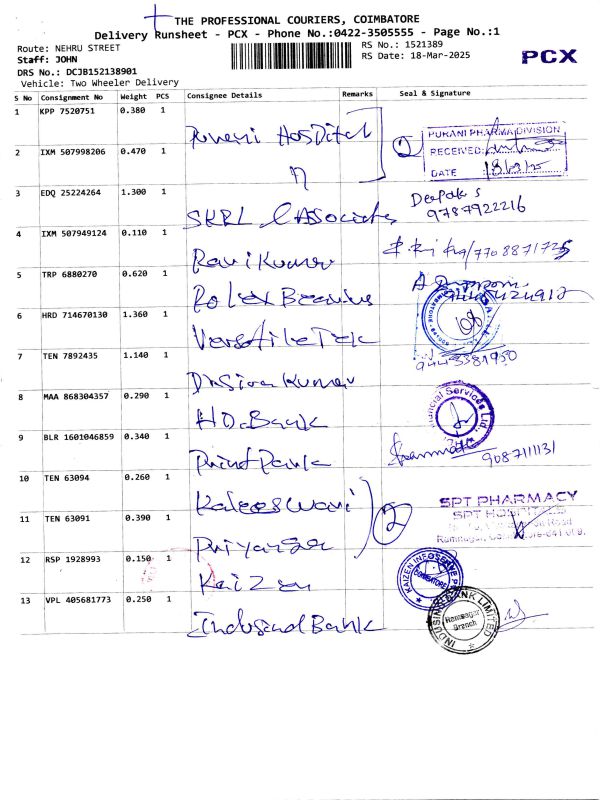 THE PROFESSIONAL COURIERS, COIMBATORE
Delivery Runsheet - PCX - Phone No.:0422-3505555 - Page No.:1
Route: NEHRU STREET
RS No.: 1521389
Staff: JOHN
RS Date: 18-Mar-2025
PCX
DRS No.: DCJB152138901
Vehicle: Two Wheeler Delivery
S No Consignment No Weight PCS Consignee Details Remarks Seal & Signature
1 KPP 7520751 0.380 1
Purani Hospital
2
PURANI PHARMA DIVISION
RECEIVED
DATE 18/3/25
2 IXM 507998206 0.470 1
3 EDQ 25224264 1.300 1
SKRL & Associates
Deepak S
9787922216
4 IXM 507949124 0.110 1
Ravi Kumar
7708871725
5 TRP 6880270 0.620 1
Rolex Bearins
6 HRD 714670130 1.360 1
Versatile Tek
7 TEN 7892435 1.140 1
Dr Siva Kumar
9443381950
8 MAA 868304357 0.290 1
HD Bank
Financial Services Ltd.
9 BLR 1601046859 0.340 1
Print Park
9087111131
10 TEN 63094 0.260 1
Kaleeswari
2
SPT PHARMACY
SPT HOSPITALS
11 TEN 63091 0.390 1
Priyanga
12 RSP 1928993 0.150 1
Kaizen
KAIZEN INFOSERVE
COIMBATORE
13 VPL 405681773 0.250 1
Indusind Bank
INDUSIND BANK LIMITED
Ramnagar
Branch